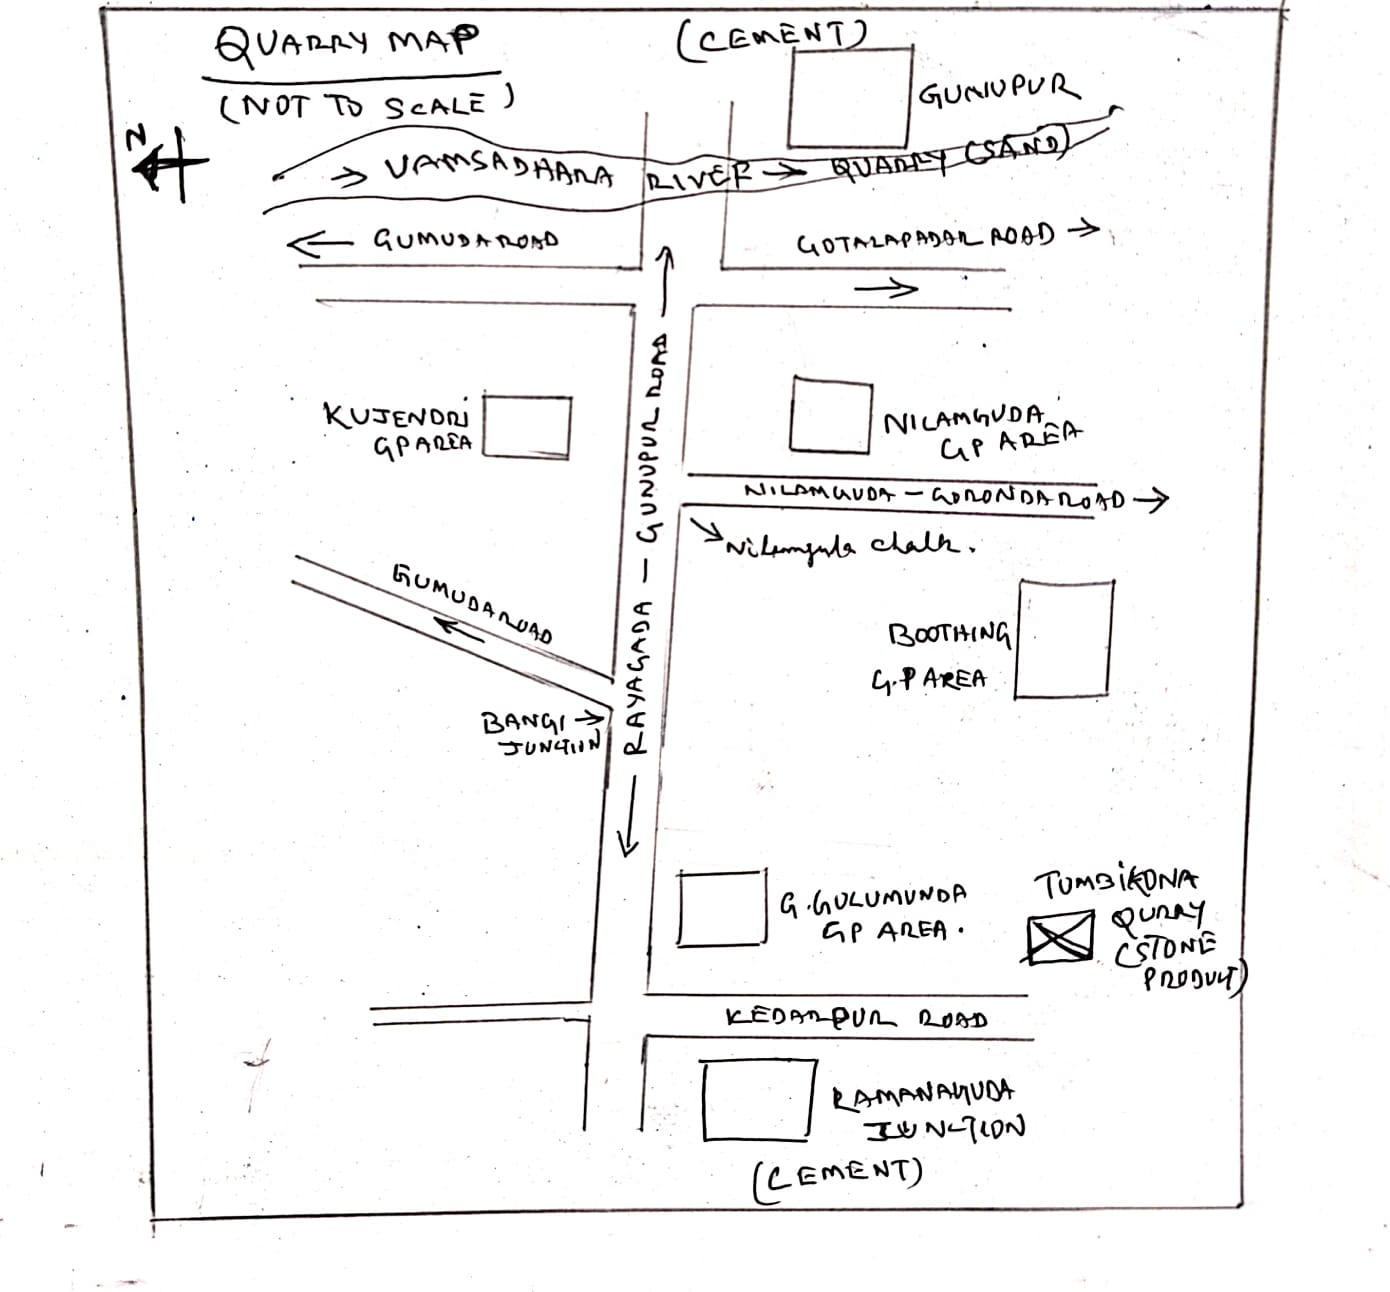 QUARRY MAP
(NOT TO SCALE)
(CEMENT)
GUNUPUR
N
→ VAMSADHARA RIVER → QUARRY (SAND)
← GUMUDA ROAD
GOTALAPADAR ROAD →
→
KUJENDRI
GP AREA
NILAMGUDA
GP AREA
NILAMGUDA - GORONDA ROAD →
Nilamguda chalk.
← RAYAGADA - GUNUPUR ROAD →
GUMUDA ROAD
←
BOOTHING
G.P AREA
BANGI →
JUNCTION
G.GULUMUNDA
GP AREA.
TUMBIKONA
QURRY
(STONE
PRODUCT)
KEDARPUR ROAD
RAMANAGUDA
JUNCTION
(CEMENT)